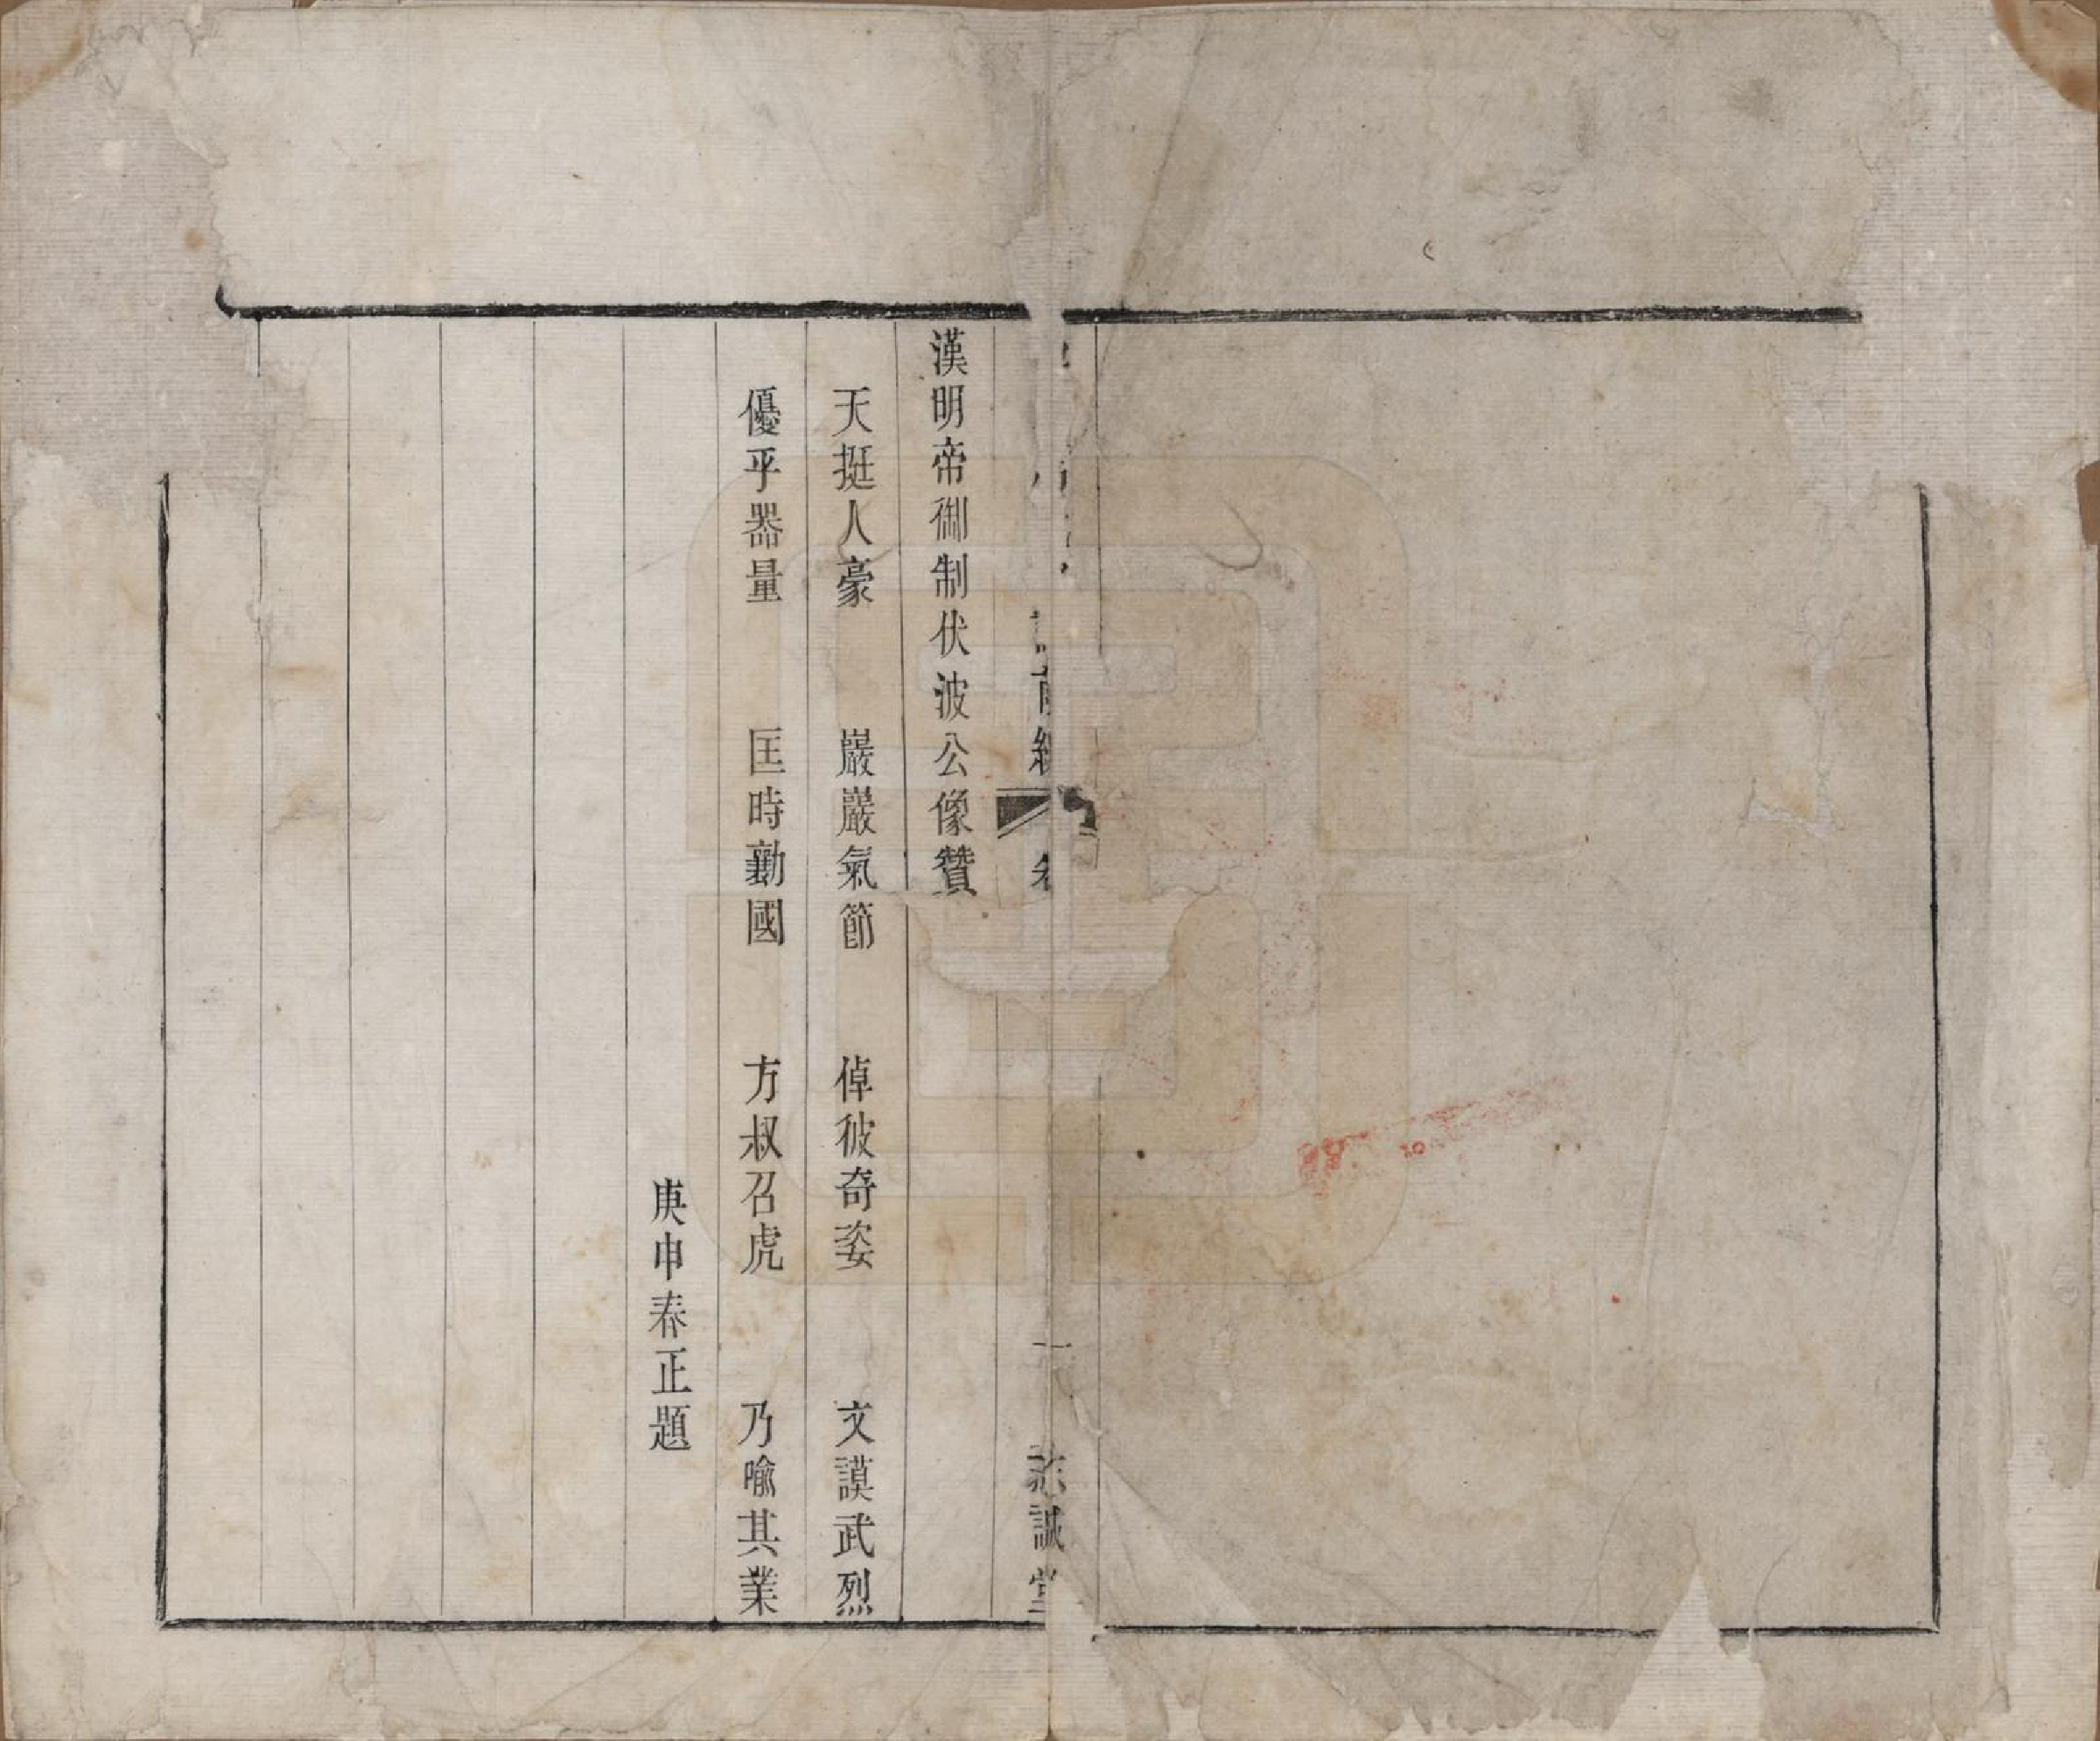 漢明帝御制伏波公像贊
天挺人豪 巖巖氣節 倬彼奇姿 文謨武烈
優乎器量 匡時勷國 方叔召虎 乃喻其業
庚申春正題
一
誠堂